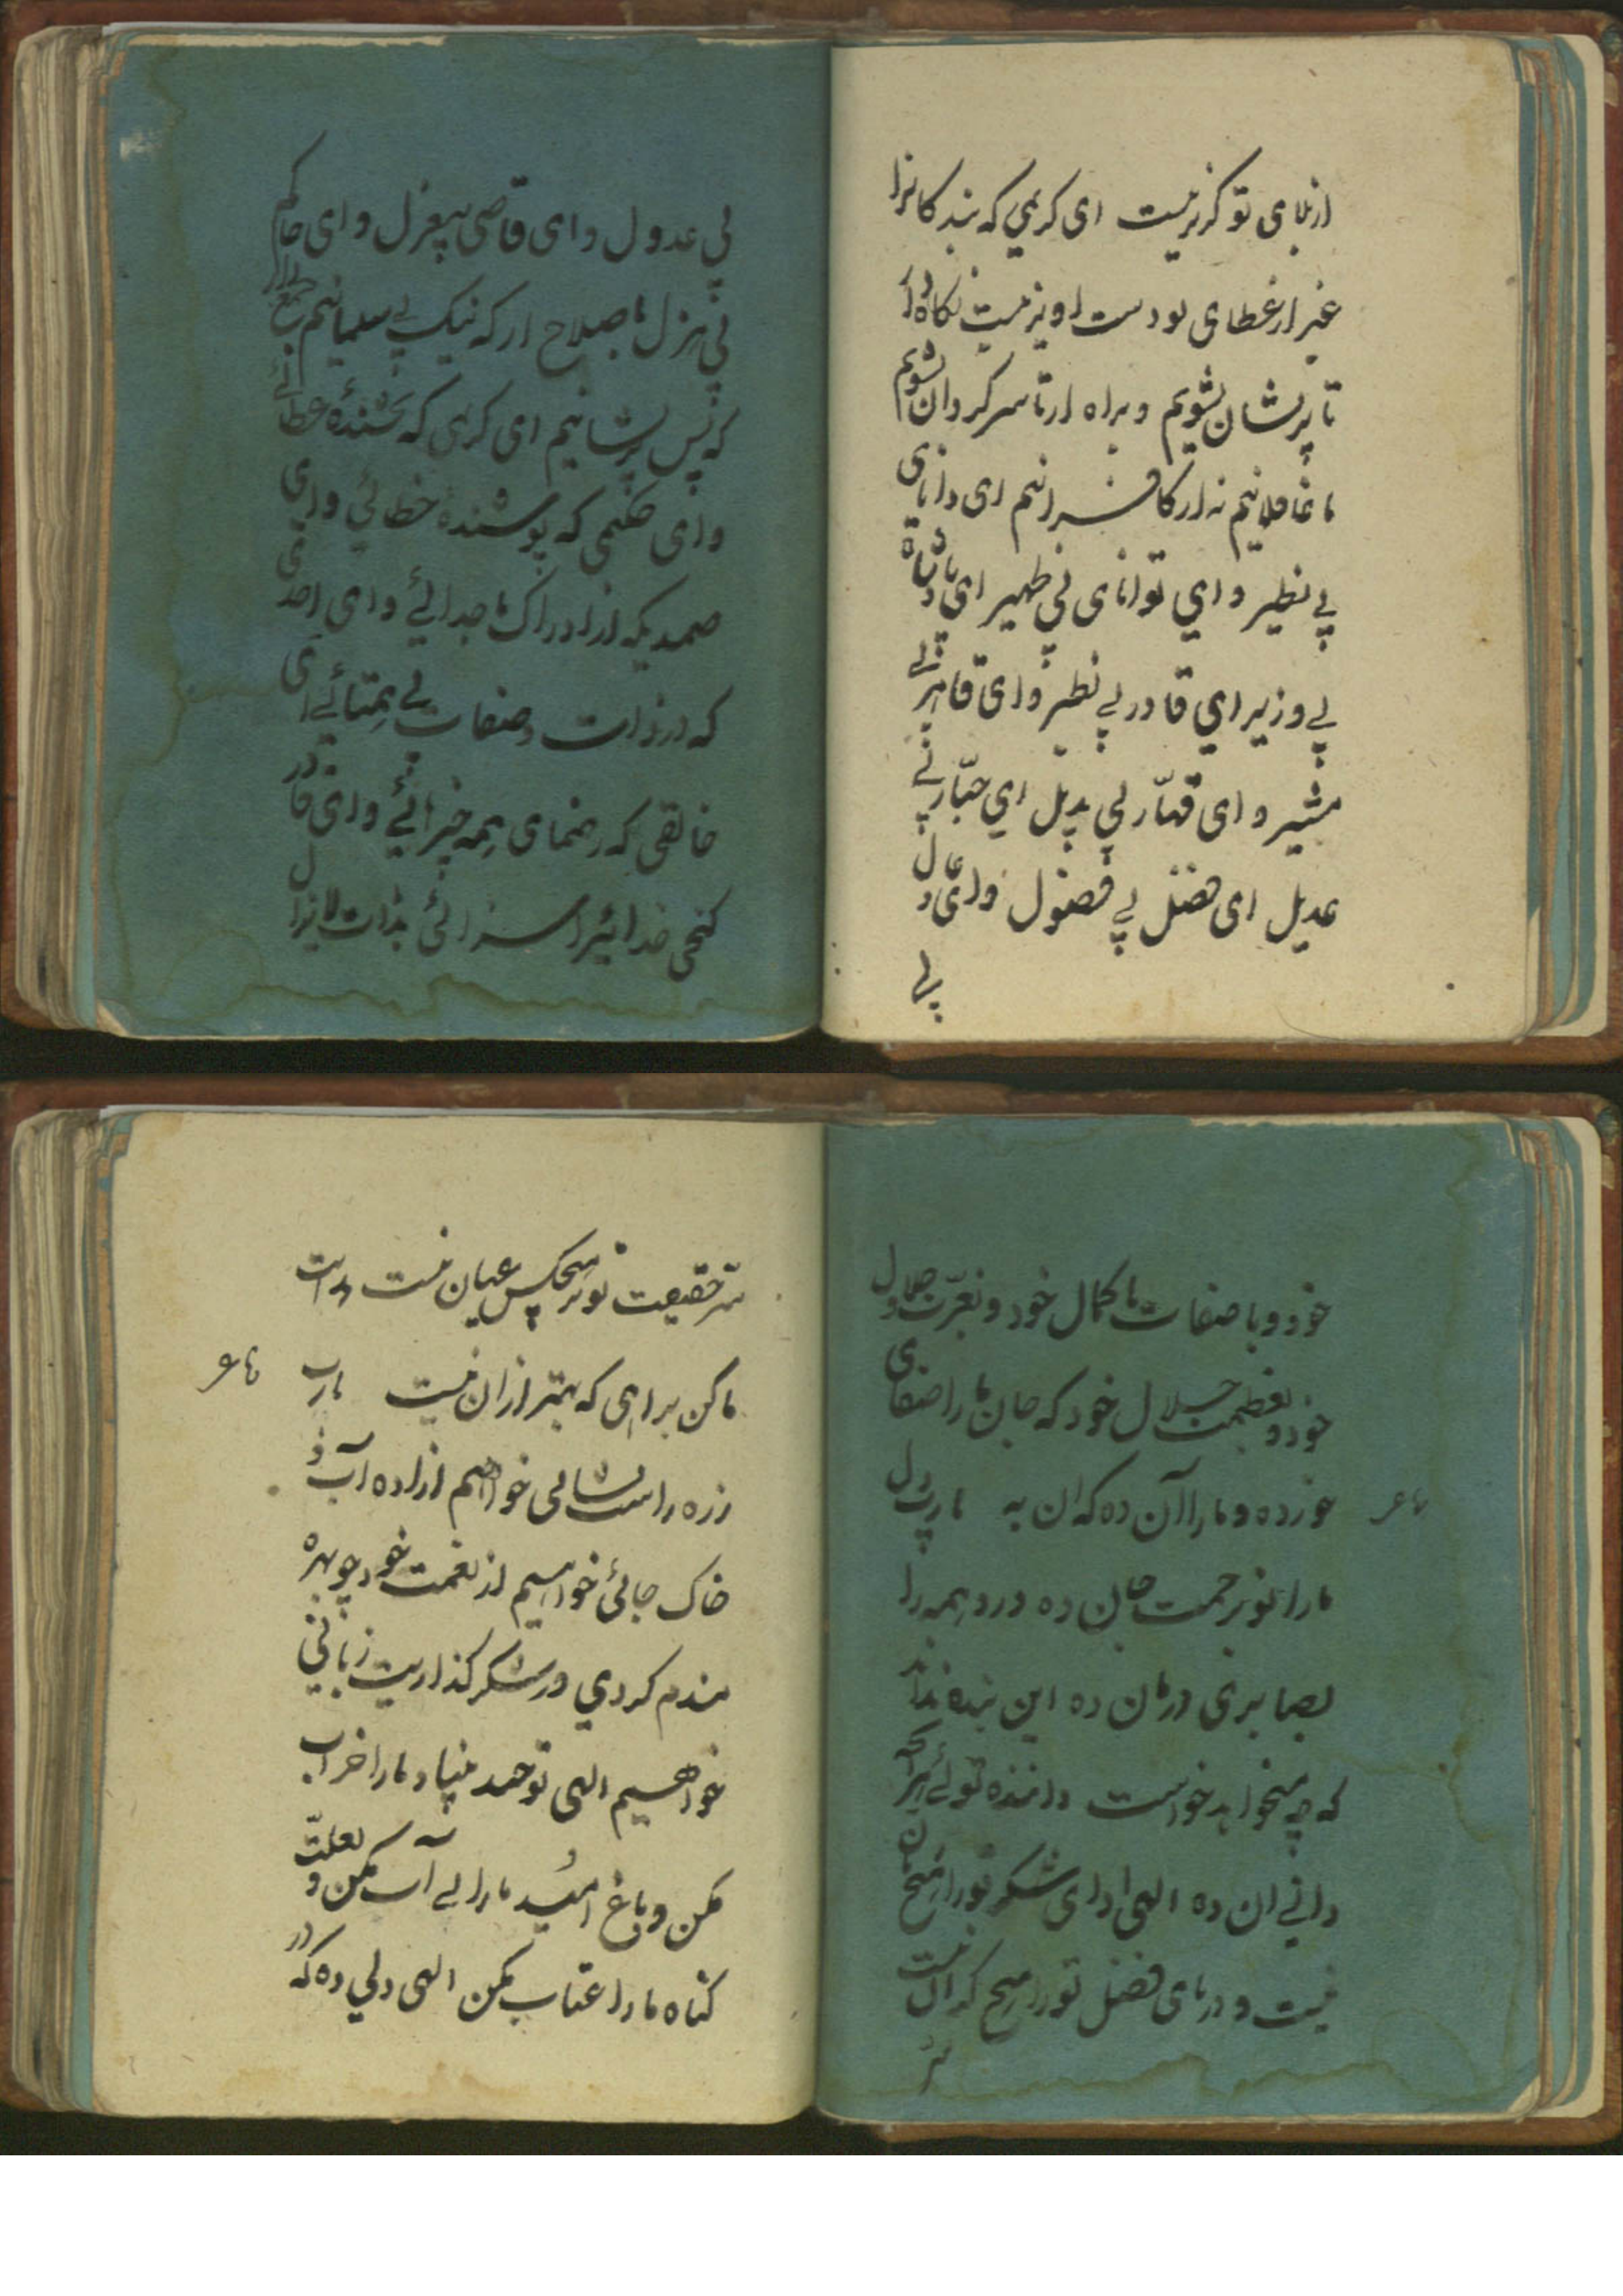 از بلای تو گریز نیست ای کریمی که بندگانرا
غیر از عطای تو دست اویز نیست نگاه دار
تا پریشان نشویم و براه ار تا سرگردان نشویم
ما غافلانیم نه ار کافرانیم ای دانای
بی نظیر و ای توانای بی ظهیر ای پادشاه
بی وزیر ای قادر بی نظیر وای قاهر بی
مشیر وای قهّار بی بدیل ای جبّار بی
عدیل ای فضل بی فضول وای عادل
بی
بی عدول وای قاضی بیعزل وای حاکم
بی هزل باصلاح ار که نیک بی سامانیم جمع دار
که بس پریشانیم ای کریمی که بخشندهٔ عطائی
وای حکیمی که پوشنده خطائی وای
صمدیکه از ادراک ما جدائی وای احدی
که در ذات و صفات بی همتائی ای
خالقی که رهنمای همه چیزائی وای قادر
کنجی خدائیرا سزائی بذات لایزال
خود و با صفات با کمال خود و بعزّت جلال
خود و بعظمت جلال خود که جان ما را صفای
خود ده و ما را آن ده که ان به یا رب دل
شاعر
ما را تو برحمت جان ده درد همه را
بصابری درمان ده این بنده نداند
که چه میخواهد خواست داننده توئی هر آنچه
دانی ان ده الهی ادای شکر تو را هیچ زبان
نیست و دریای فضل تو را هیچ کران نیست
سرّ
سرّ حقیقت تو بر هیچکس عیان نیست هدایت
ما کن براهی که بهتر از ان نیست یا رب
شاعر
ز ره راست نشانی خواهیم از باده آب و
خاک جائی خواهیم از نعمت خود چو بهره
مندم کردی در شکر گذاریت زبانی
خواهیم الهی تو حمد بنیاد ما را خراب
مکن و باغ امید ما را بی آب مکن و بعلّت
گناه ما را عتاب مکن الهی دلی ده که در